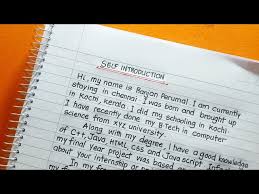 SELF INTRODUCTION
Hi, my name is Ranjan Perumal. I am currently
staying in chennai. I was born and brought up
in Kochi, Kerala. I did my schooling in Kochi.
I have recently done my B.Tech in computer
science from XYZ university.
Along with my degree, I have a good knowledge
of C++, Java, HTML, CSS and JavaScript. In
my final year project was based on
about, your internship or
In my fr